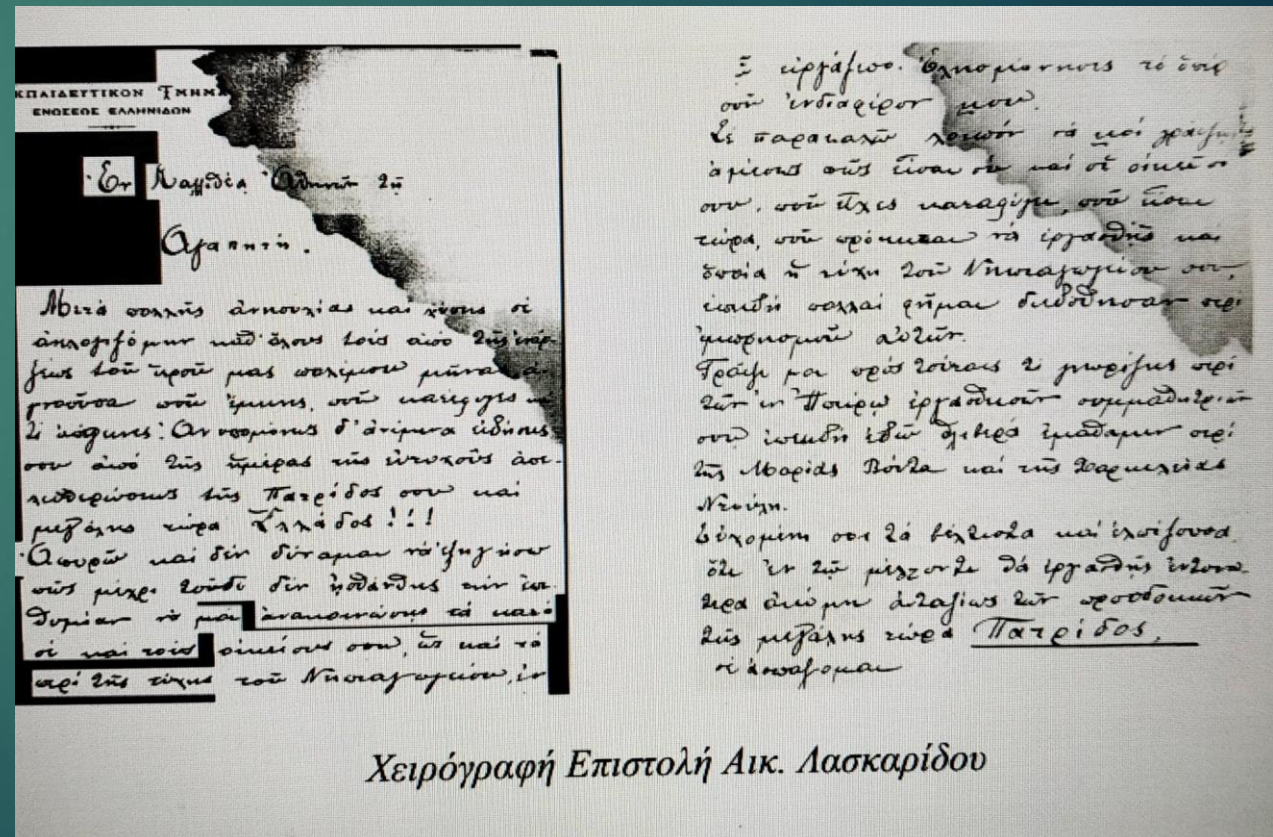 ΚΠΑΙΔΕΥΤΙΚΟΝ ΤΜΗΜΑ
ΕΝΩΣΕΩΣ ΕΛΛΗΝΙΔΩΝ
Ἐν Καλλιθέᾳ Ἀθηνῶν τῇ
Ἀγαπητή.
Μετὰ πολλῆς ἀνησυχίας καὶ
καθ' ὅλους τοὺς ἀπὸ τῆς ἐνάρ-
ξεως τοῦ ἱεροῦ μας πολέμου μῆνας ἀ-
γνοοῦσα ποῦ ἔμεινες, ποῦ κατέφυγες
τί κάμνεις; Ἀνυπομόνως δ' ἀνέμενα εἰδήσεις
σου ἀπὸ τῆς ἡμέρας τῆς εὐτυχοῦς ἀπε-
λευθερώσεως τῆς Πατρίδος σου καὶ
μεγάλης τώρα Ἑλλάδος!!!
Ἀπορῶ καὶ δὲν δύναμαι νὰ ἐξηγήσω
πῶς μέχρι τοῦδε δὲν ᾐσθάνθης τὴν ἐπι-
θυμίαν νὰ μοὶ ἀνακοινώσῃς τὰ κατὰ
σὲ καὶ τοὺς οἰκείους σου, ὡς καὶ τὰ
περὶ τῆς τύχης τοῦ Νηπιαγωγείου, ἐν
εἰργάζεσο. Ἐλησμόνησες τὸ ὑπὲρ
σοῦ ἐνδιαφέρον μου.
Σὲ παρακαλῶ λοιπὸν νὰ μοὶ γράψῃς
ἀμέσως πῶς εἶσαι σὺ καὶ οἱ οἰκεῖοι
σου, ποῦ εἶχες καταφύγει, ποῦ εἶσαι
τώρα, ποῦ πρόκειται νὰ ἐργασθῇς καὶ
ὁποία ἡ τύχη τοῦ Νηπιαγωγείου σου,
ἐπειδὴ πολλαὶ φῆμαι διεδόθησαν περὶ
ἐμπρησμοῦ αὐτῶν.
Γράψε μοι πρὸς τούτοις τί γνωρίζεις περὶ
τῶν ἐν Ἠπείρῳ ἐργασθεισῶν συμμαθητριῶν
σου ἐπειδὴ ἐδῶ ἐμάθαμεν περὶ
τῆς Μαρίας Βόντα καὶ τῆς Χαρικλείας
Εὐχομένη σοι τὰ βέλτιστα καὶ ἐλπίζουσα
ὅτι ἐν τῷ μέλλοντι θὰ ἐργασθῇς ἐντονώ-
τερα ἀκόμη ἀνταξίως τῶν προσδοκιῶν
τῆς μεγάλης τώρα Πατρίδος,
σὲ ἀσπάζομαι
Χειρόγραφή Επιστολή Αικ. Λασκαρίδου